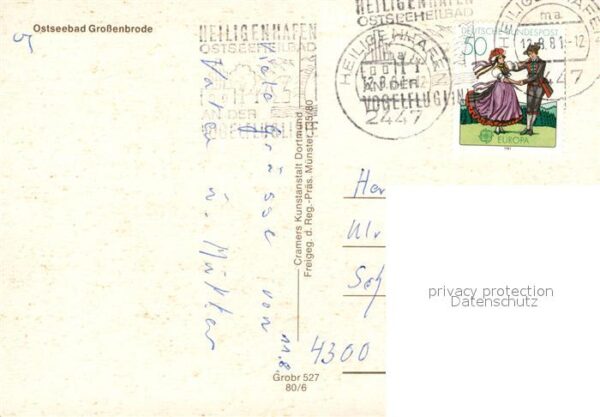 Ostseebad Großenbrode
HEILIGENHAFEN
OSTSEEHEILBAD
AN DER
VOGELFLUGLINIE
HEILIGENHAFEN
OSTSEEHEILBAD
AN DER
VOGELFLUGLIN
HEILIGENHAFEN
12.8.81-12
2447
HEILIGENHAFEN
ma
12.8.81-12
2447
DEUTSCHE BUNDESPOST
50
EUROPA
1981
Liebe Grüsse von
Vater u. Mutter
11.8
Cramers Kunstanstalt Dortmund
Freigeg. d. Reg.-Präs. Münster
Her
Ulr
Sch
4300
privacy protection
Datenschutz
Grobr 527
80/6